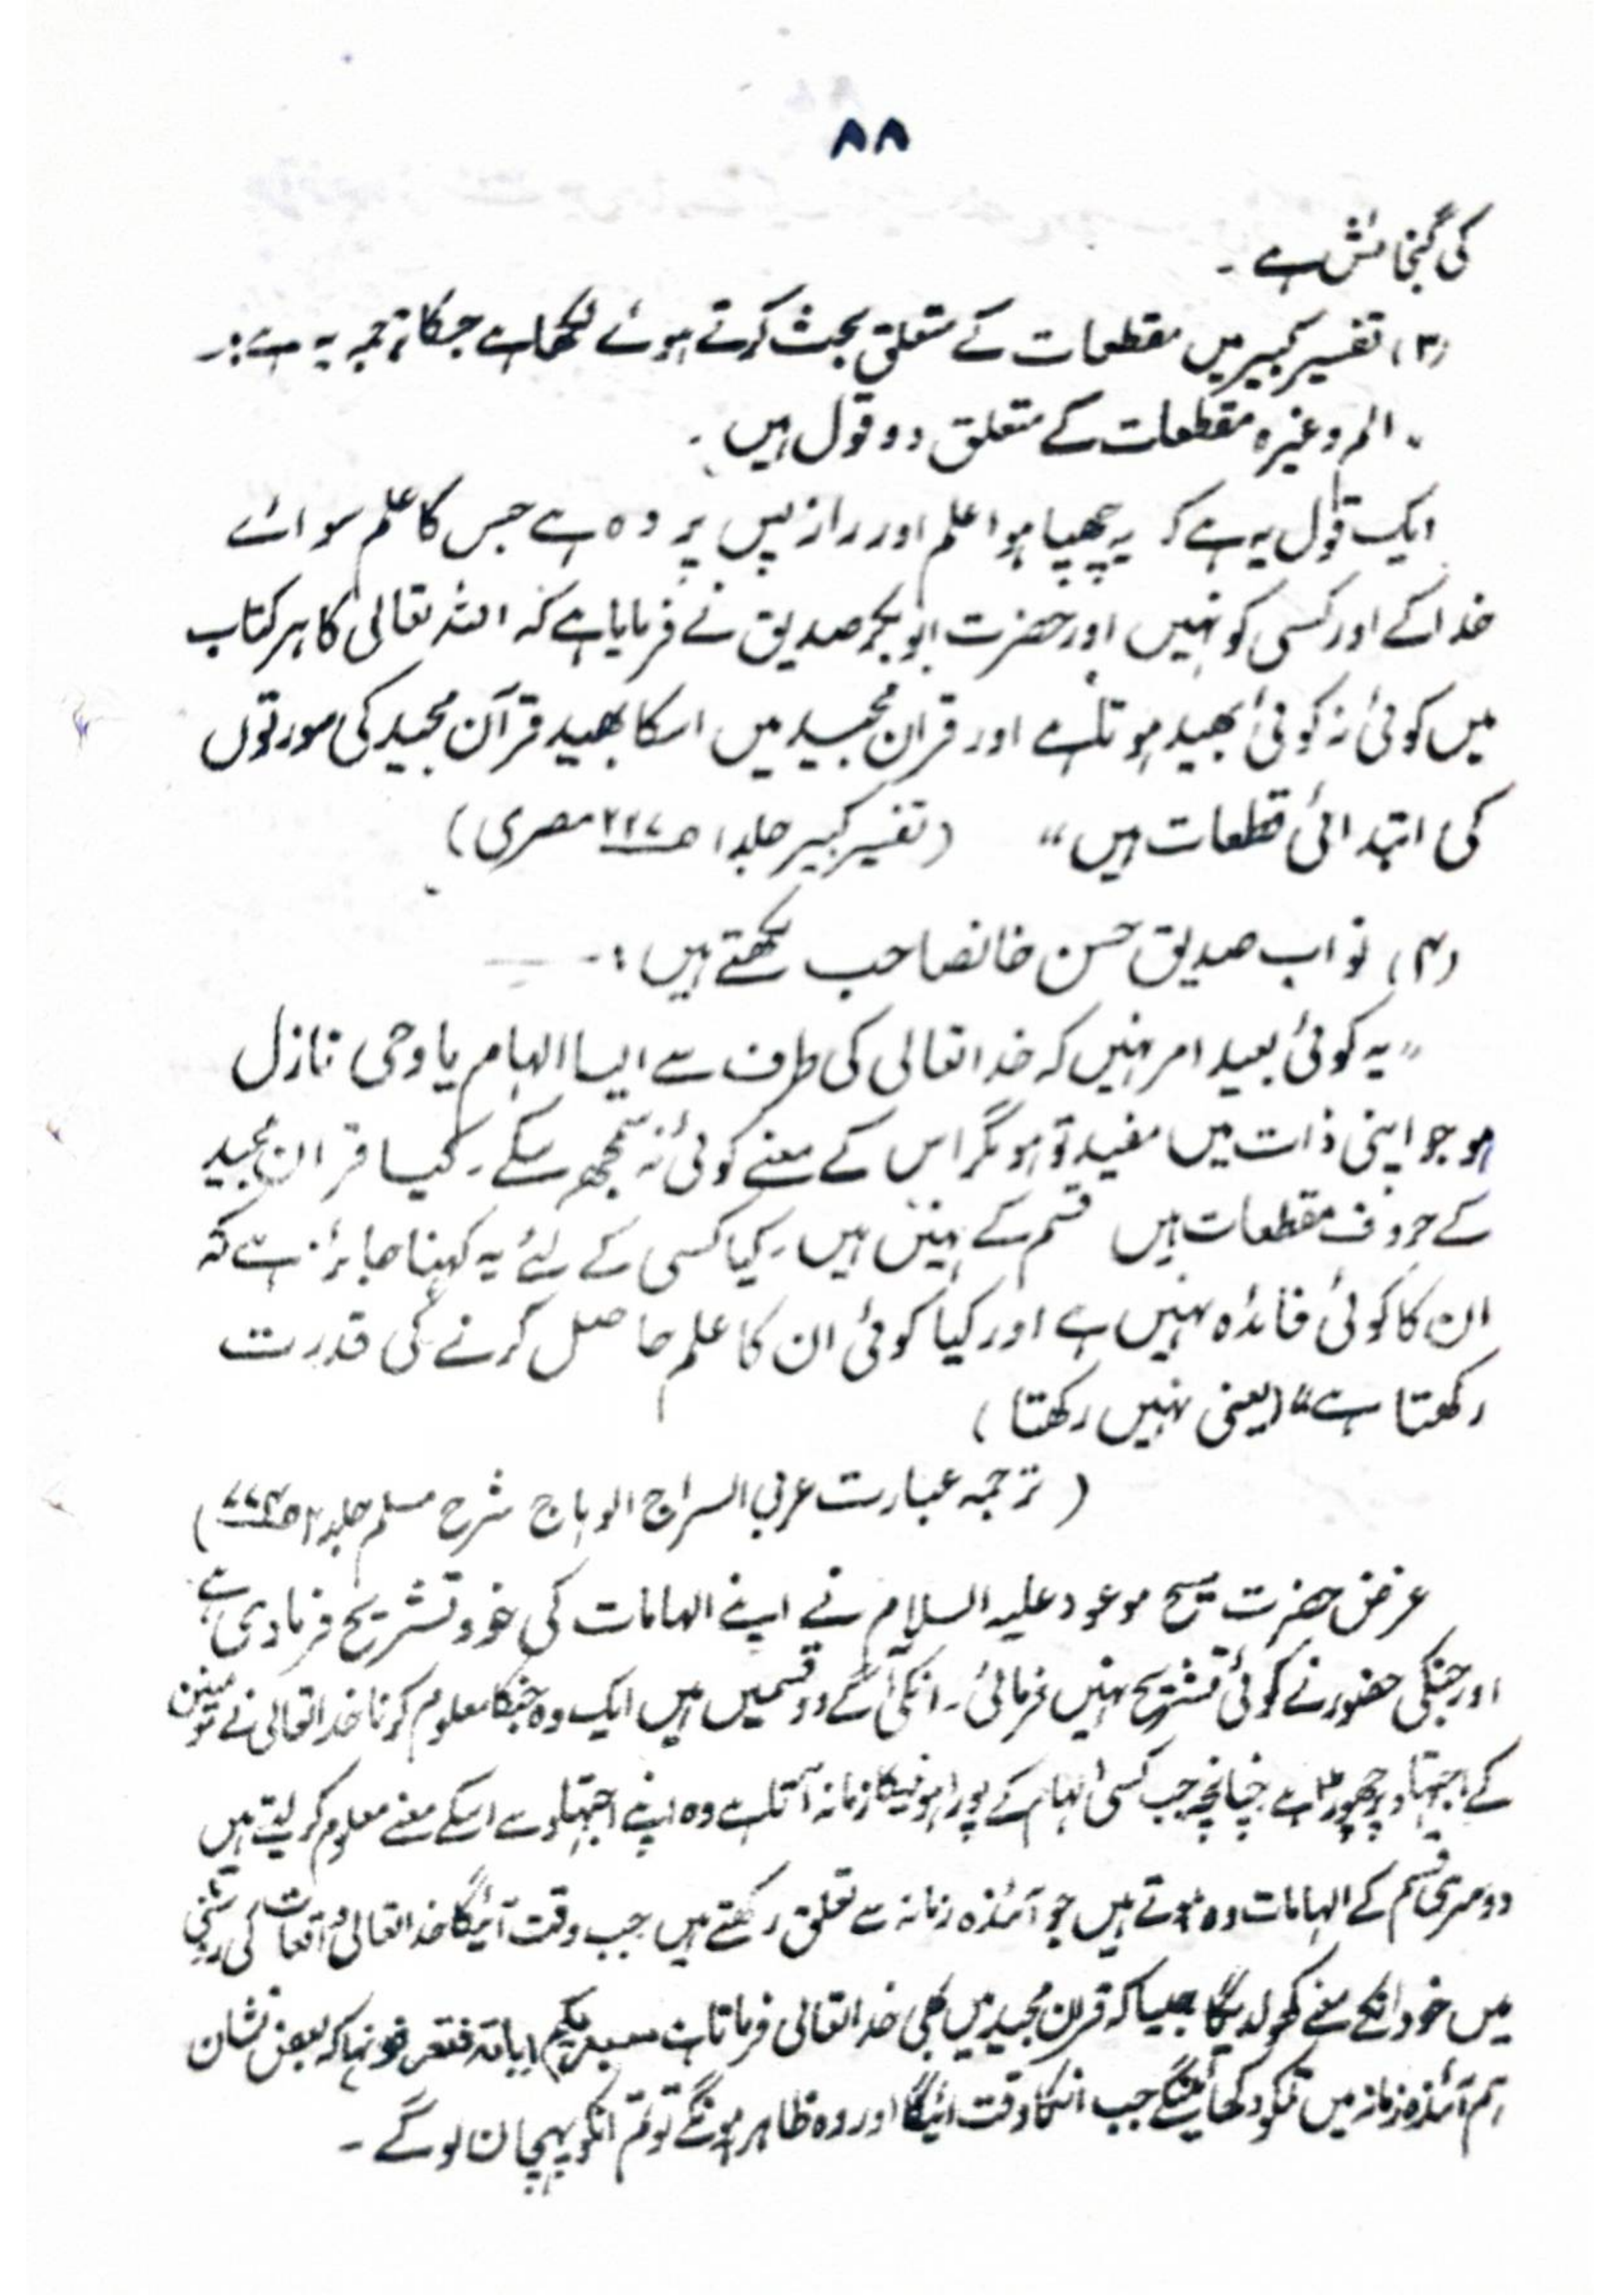 ۸۸
کی گنجائش ہے ۔
(۳) تفسیر کبیر میں مقطعات کے متعلق بحث کرتے ہوئے لکھا ہے جسکا ترجمہ یہ ہے :۔
" الم وغیرہ مقطعات کے متعلق دو قول ہیں ۔
ایک قول یہ ہے کہ یہ چھپا ہوا علم اور راز پس پردہ ہے جس کا علم سوائے
خدا کے اور کسی کو نہیں اور حضرت ابوبکر صدیق نے فرمایا ہے کہ اللہ تعالی کا ہر کتاب
میں کوئی نہ کوئی بھید ہوتا ہے اور قران مجید میں اسکا بھید قرآن مجید کی سورتوں
کی ابتدائی قطعات ہیں " (تفسیر کبیر جلد ۱ ص ۲۲۷ مصری)
(۴) نواب صدیق حسن خانصاحب لکھتے ہیں :۔
" یہ کوئی بعید امر نہیں کہ خدا تعالی کی طرف سے ایسا الہام یا وحی نازل
ہو جو اپنی ذات میں مفید تو ہو مگر اس کے معنے کوئی نہ سمجھ سکے ۔ کیا قران مجید
کے حروف مقطعات ہیں قسم کے نہیں ہیں ۔ کیا کسی کے لئے یہ کہنا جائز ہے کہ
ان کا کوئی فائدہ نہیں ہے اور کیا کوئی ان کا علم حاصل کرنے کی قدرت
رکھتا ہے " (یعنی نہیں رکھتا)
( ترجمہ عبارت عربی السراج الوہاج شرح مسلم جلد ۲ ص ۷۷۴)
غرض حضرت مسیح موعود علیہ السلام نے اپنے الہامات کی خود تشریح فرمادی ہے
اور جنکی حضور نے کوئی تشریح نہیں فرمائی ۔ انکی آگے دو قسمیں ہیں ایک وہ جنکا معلوم کرنا خدا تعالی نے مومنین
کے اجتہاد پر چھوڑا ہے چنانچہ جب کسی الہام کے پورا ہونیکا زمانہ آتا ہے وہ اپنے اجتہاد سے اسکے معنے معلوم کر لیتے ہیں
دوسری قسم کے الہامات وہ ہوتے ہیں جو آئندہ زمانہ سے تعلق رکھتے ہیں جب وقت آئیگا خدا تعالی واقعات کی روشنی
میں خود انکے معنے کھولدیگا جیسا کہ قران مجید میں بھی خدا تعالی فرماتا ہے سیریکم ایاتہ فتعرفونہا کہ بعض نشان
ہم آئندہ زمانہ میں تمکو دکھائینگے جب انکا وقت آئیگا اور وہ ظاہر ہونگے تو تم انکو پہچان لوگے ۔